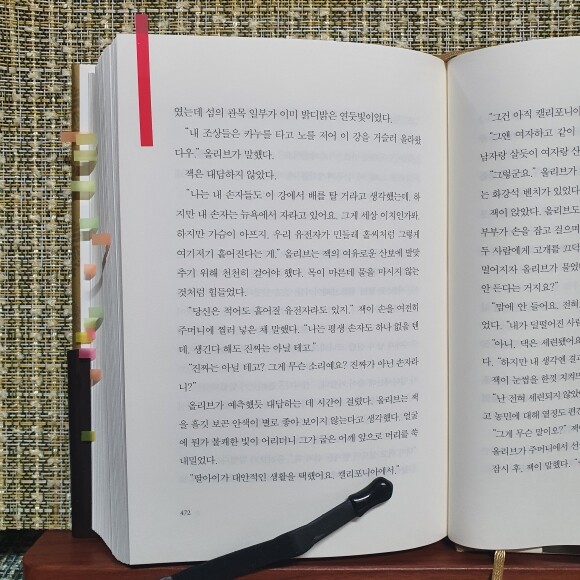 였는데 섬의 관목 일부가 이미 밝디밝은 연둣빛이었다.
"내 조상들은 카누를 타고 노를 저어 이 강을 거슬러 올라왔
다우." 올리브가 말했다.
잭은 대답하지 않았다.
"나는 내 손자들도 이 강에서 배를 탈 거라고 생각했는데, 하
지만 내 손자는 뉴욕에서 자라고 있어요. 그게 세상 이치인가봐
하지만 가슴이 아프지. 우리 유전자가 민들레 홀씨처럼 그렇게
여기저기 흩어진다는 게." 올리브는 잭의 여유로운 산보에 발맞
추기 위해 천천히 걸어야 했다. 목이 마른데 물을 마시지 않는
것처럼 힘들었다.
"당신은 적어도 흩어질 유전자라도 있지." 잭이 손을 여전히
주머니에 찔러 넣은 채 말했다. "나는 평생 손자도 하나 없을 텐
데. 생긴다 해도 진짜는 아닐 테고."
"진짜는 아닐 테고? 그게 무슨 소리예요? 진짜가 아닌 손자라
니?"
올리브가 예측했듯 대답하는 데 시간이 걸렸다. 올리브는 잭
을 흘깃 보곤 안색이 별로 좋아 보이지 않는다고 생각했다. 얼굴
에 뭔가 불쾌한 빛이 어리더니 그가 굽은 어깨 앞으로 머리를 쑥
내밀었다.
"딸아이가 대안적인 생활을 택했어요. 캘리포니아에서."
472
"그건 아직 캘리포니아
"그앤 여자하고 같이
남자랑 살듯이 여자랑 산
"그렇군요." 올리브가
는 화강석 벤치가 있었다
잭이 앉았다. 올리브도
부부가 손을 잡고 걸으며
두 사람에게 고개를 끄덕
멀어지자 올리브가 물었
안 든다는 거지요?"
"맘에 안 들어요. 전혀
었다. "내가 덜떨어진 사람
"아니, 댁은 세련됐어요
다. "하지만 내 생각엔 결
잭이 눈썹을 한껏 치켜뜨
"난 전혀 세련되지 않았
고 농민에 대해 열정도 편견
"그게 무슨 말이오?" 잭
올리브가 주머니에서 선
잠시 후, 잭이 말했다.